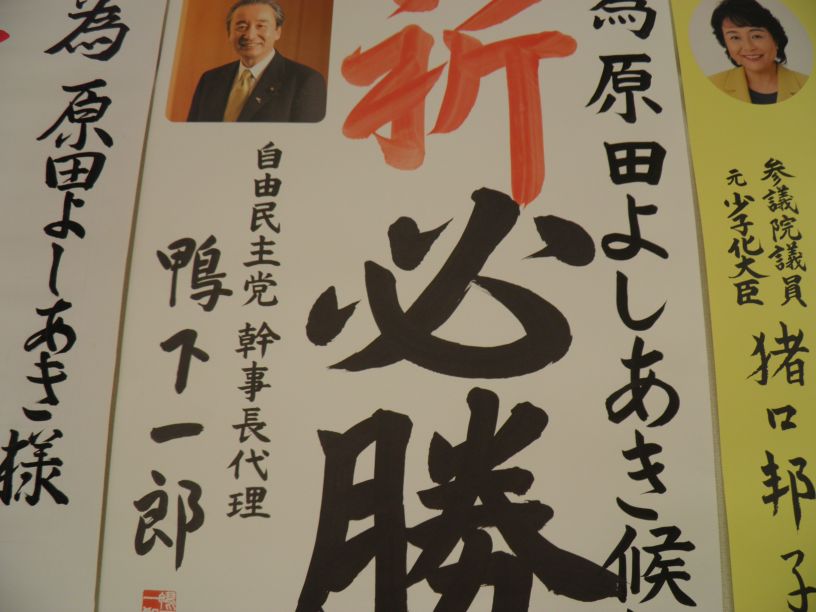 参議院議員
元少子化大臣
猪口邦子
為原田よしあき候
祈
必勝
自由民主党 幹事長代理
鴨下一郎
為原田よしあき様